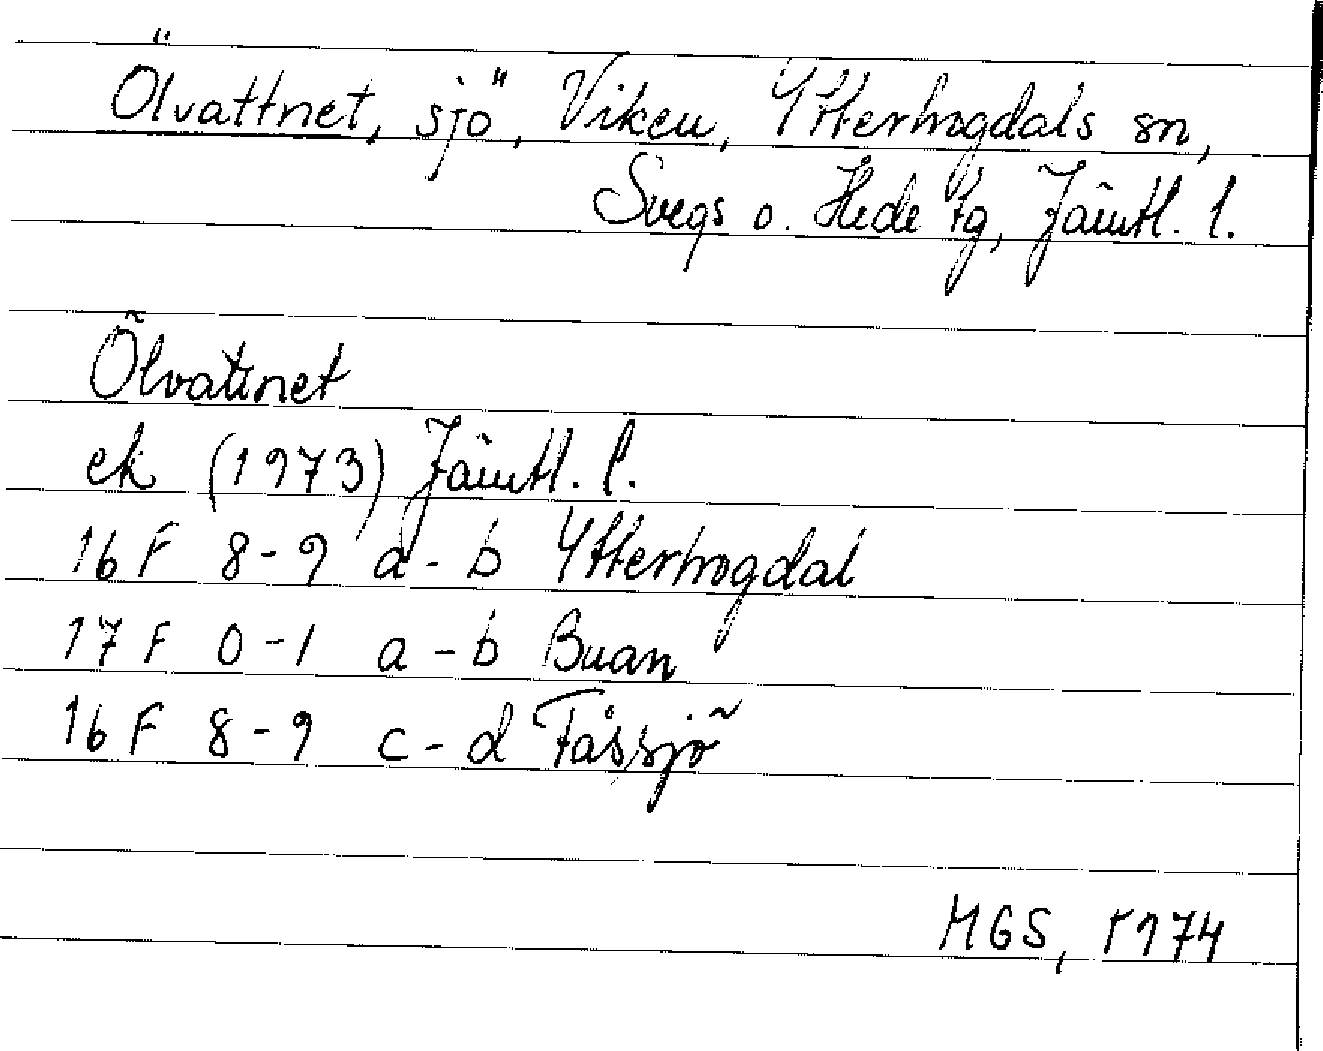 Ölvattnet, sjö, Viken, Ytterhogdals sn,
Svegs o. Hede tg, Jämtl. l.
Ölvattnet
ek (1973) Jämtl. l.
16 F 8-9 a-b Ytterhogdal
17 F 0-1 a-b Buan
16 F 8-9 c-d Fåssjö
MGS, 1974